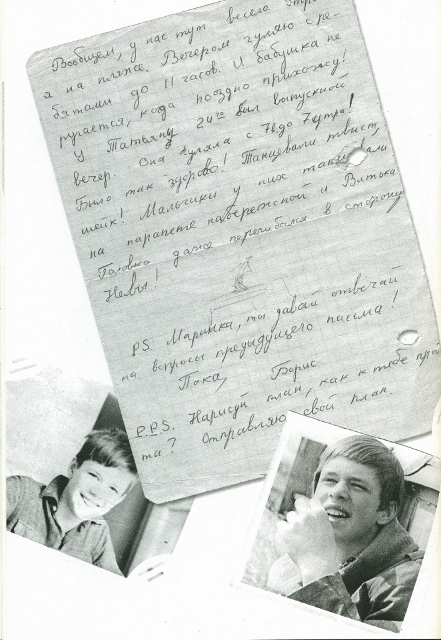 Вообщем, у нас тут весело. Утром
я на пляже. Вечером гуляю с ре-
бятами до 11 часов. И бабушка не
ругается, когда поздно прихожу!
У Татьяны 24го был выпускной
вечер. Она гуляла с 7в до 7 утра!
Было так здорово! Танцевали твист,
шейк! Мальчики у них танцевали
на парапете набережной и Витька
Головко даже перегибался в сторону
Невы!
PS. Маринка, ты давай отвечай
на вопросы предыдущего письма!
Пока, Борис
P.P.S. Нарисуй план, как к тебе прой
ти? Отправляю свой план.